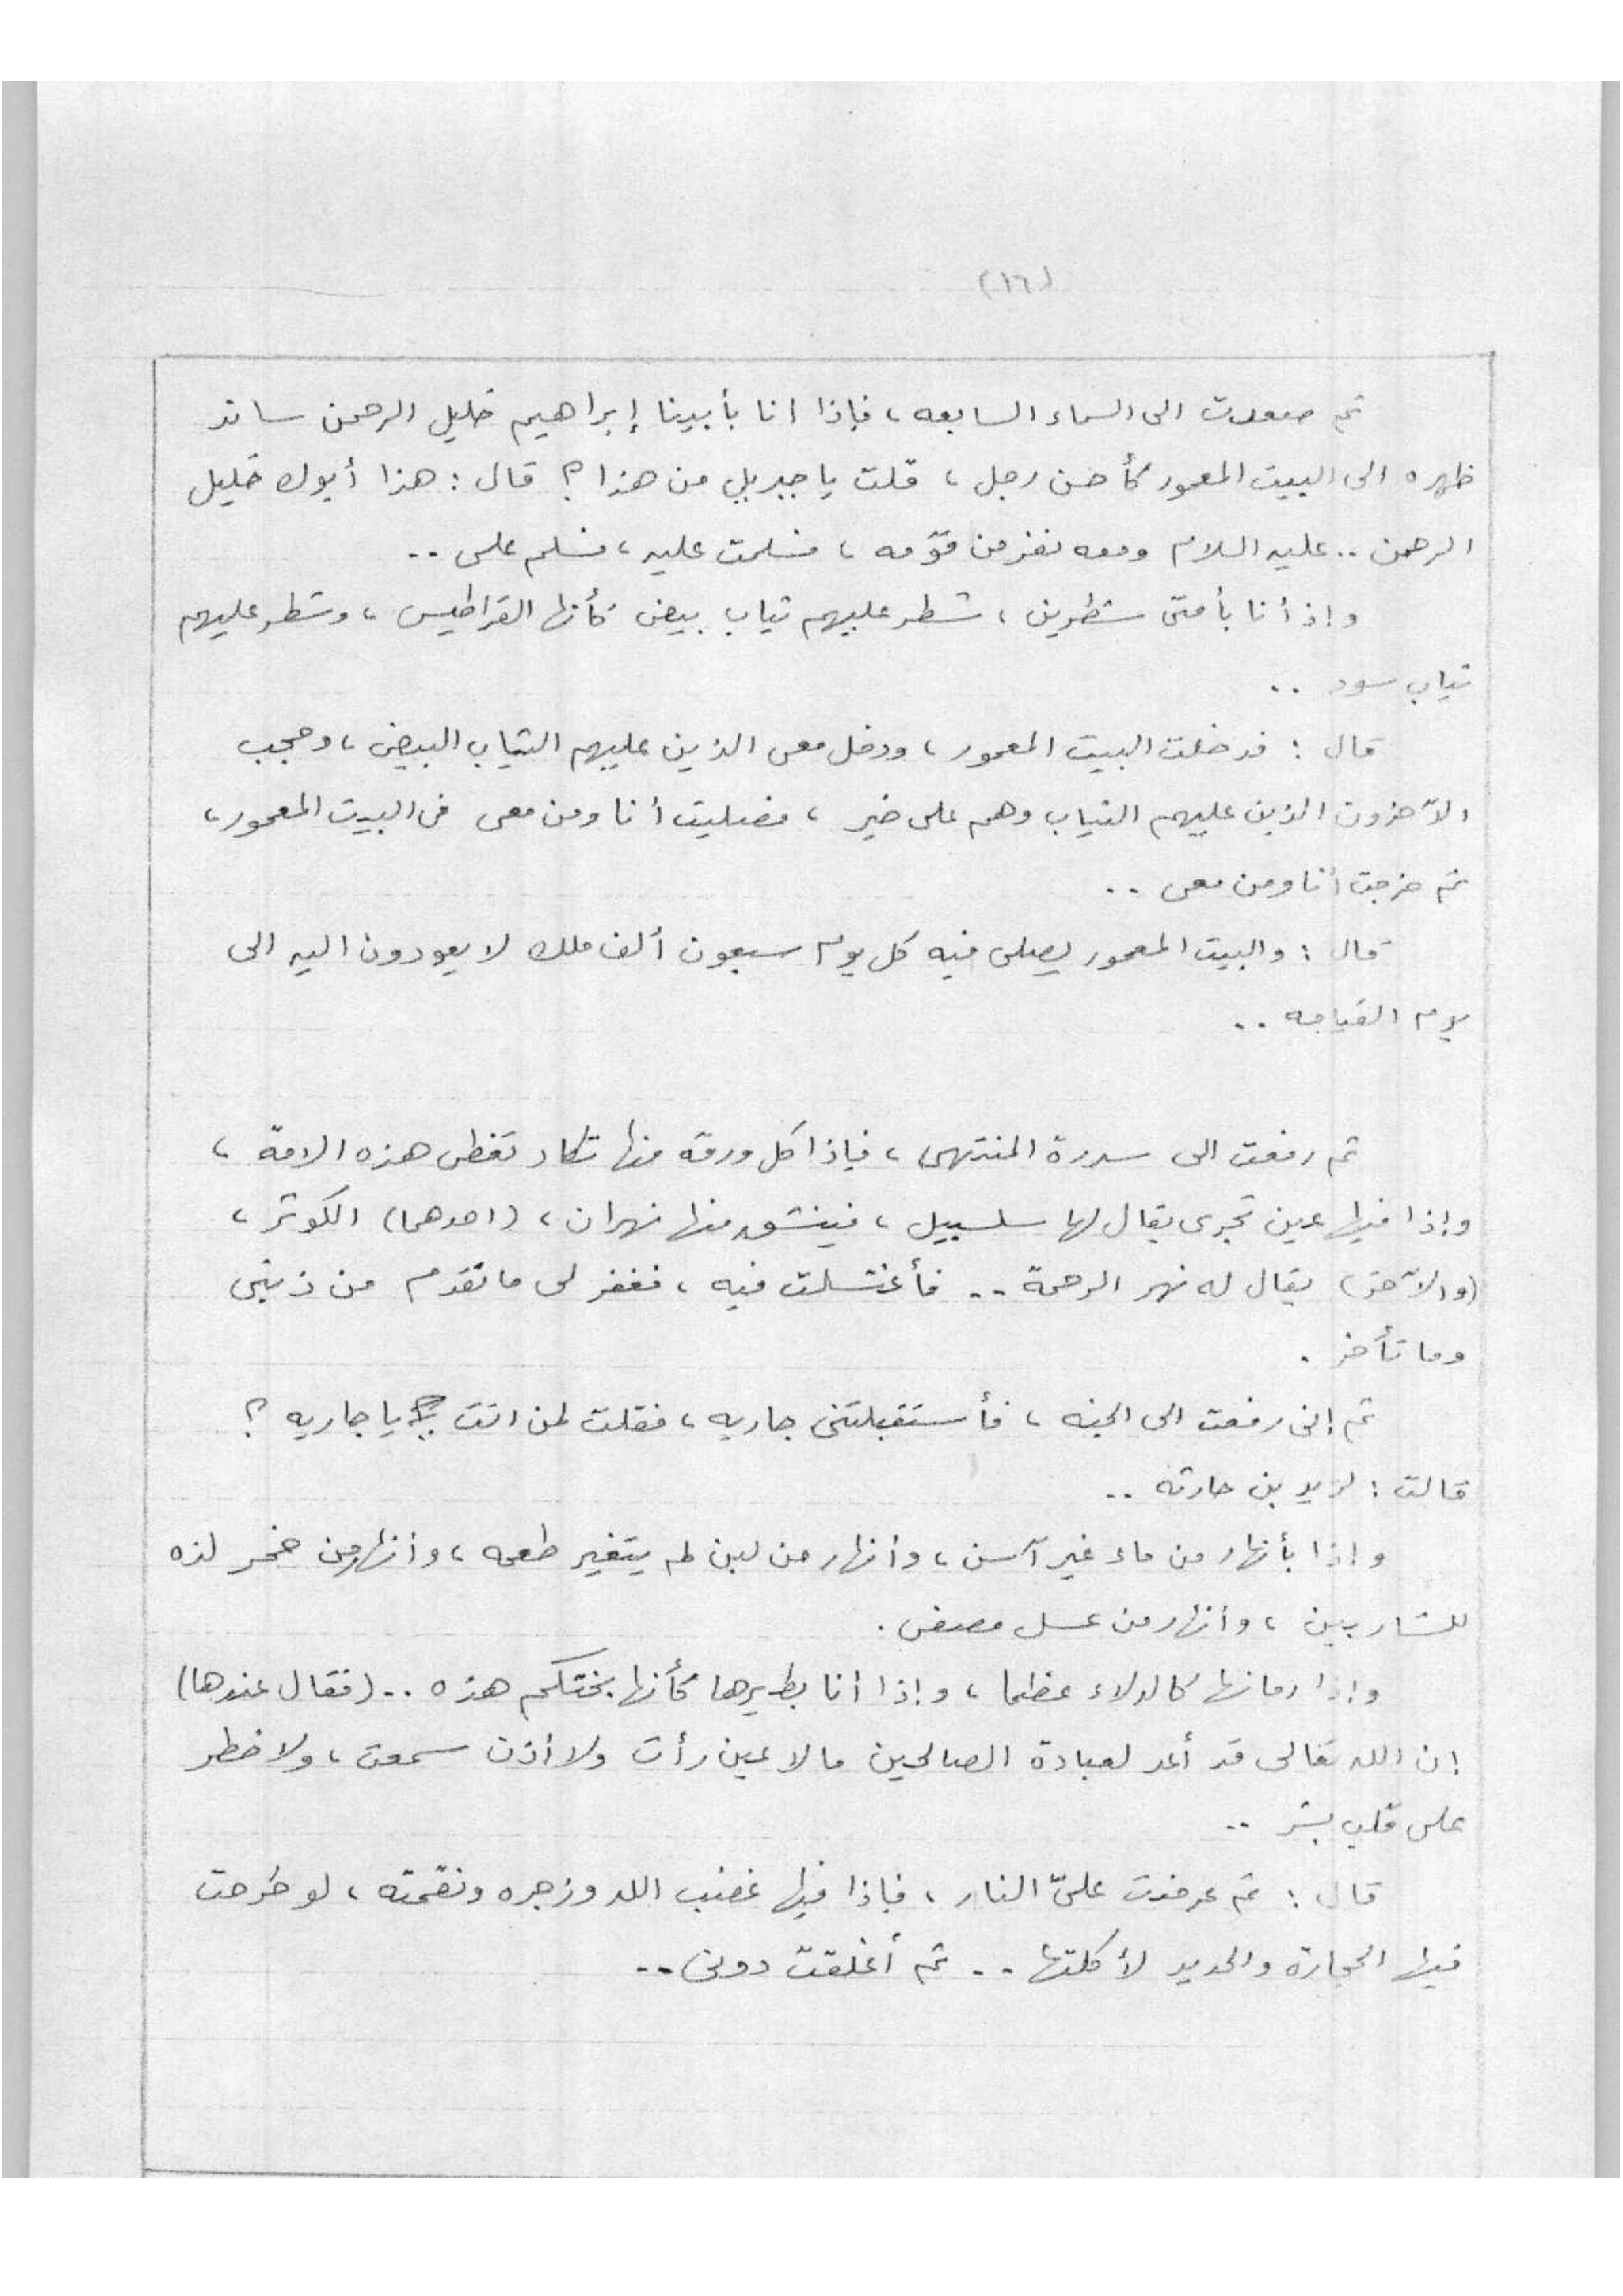 (١٦)
ثم صعدت الى السماء السابعه ، فإذا انا بأبينا إبراهيم خليل الرحمن ساند
ظهره الى البيت المعمور كأحسن رجل ، قلت يا جبريل من هذا ؟ قال : هذا أبوك خليل
الرحمن .. عليه السلام ومعه نفر من قومه ، فسلمت عليه ، فسلم على ..
وإذ أنا بأمتى شطرين ، شطر عليهم ثياب بيض كأنها القراطيس ، وشطر عليهم
ثياب سود ..
قال : فدخلت البيت المعمور ، ودخل معى الذين عليهم الثياب البيض ، وحجب
الآخرون الذين عليهم الثياب وهم على خير ، فصليت أنا ومن معى فى البيت المعمور ،
ثم خرجت أنا ومن معى ..
قال : والبيت المعمور يصلى فيه كل يوم سبعون ألف ملك لا يعودون اليه الى
يوم القيامه ..
ثم رفعت الى سدرة المنتهى ، فإذا كل ورقه منها تكاد تغطى هذه الامة ،
وإذا فيها عين تجرى يقال لها سلسبيل ، فينشق منها نهران ، (احدهما) الكوثر ،
(والآخر) يقال له نهر الرحمة .. فأغتسلت فيه ، فغفر لى ما تقدم من ذنبى
وما تأخر .
ثم إنى رفعت الى الجنه ، فأستقبلتنى جاريه ، فقلت لمن انت يا جاريه ؟
قالت : لزيد بن حارثه ..
وإذا بأنهار من ماء غير آسن ، وأنهار من لبن لم يتغير طعمه ، وأنهار من خمر لذه
للشاربين ، وأنهار من عسل مصفى .
وإذا رمانها كالدلاء عظما ، وإذا أنا بطيرها كأنها بختكم هذه .. (فقال عندها)
إن الله تعالى قد أعد لعبادة الصالحين ما لا عين رأت ولا أذن سمعت ، ولا خطر
على قلب بشر ..
قال : ثم عرضت علىّ النار ، فإذا فيها غضب الله وزجره ونقمته ، لو طرحت
فيها الحجارة والحديد لأكلتها .. ثم أغلقت دونى ..